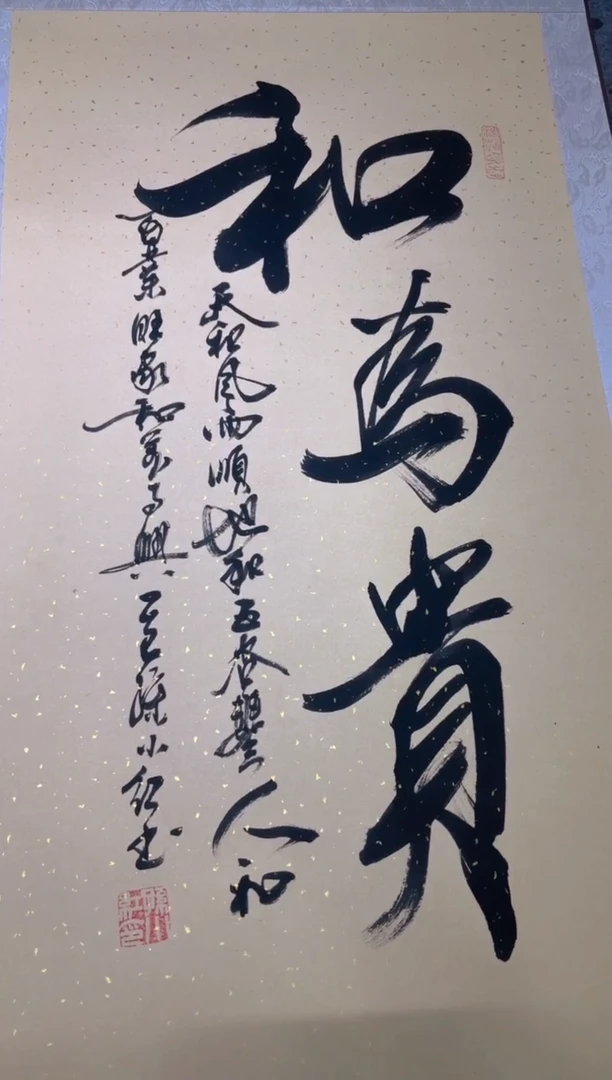 和為貴
天和風雨順地和五谷豐人和
百業旺家和萬事興
陳小紅書